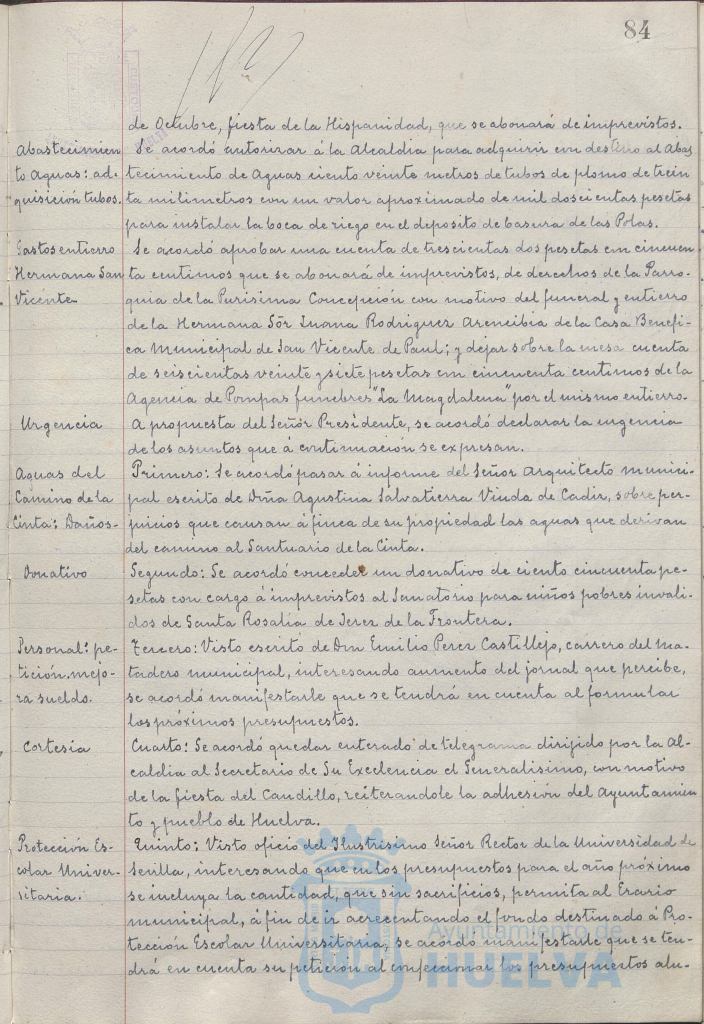 84
de Octubre, fiesta de la Hispanidad, que se abonará de imprevistos.
Abastecimien
to Aguas: ad-
quisición tubos.
Se acordó autorizar á la Alcaldia para adquirir con destino al Abas
tecimiento de Aguas ciento veinte metros de tubos de plomo de trein
ta milimetros con un valor aproximado de mil doscientas pesetas
para instalar la boca de riego en el deposito de basura de las Polas.
Gastos entierro
Hermana San
Vicente
Se acordó aprobar una cuenta de trescientas dos pesetas con cincuen
ta centimos que se abonará de imprevistos, de derechos de la Parro-
quia de la Purisima Concepción con motivo del funeral y entierro
de la Hermana Sór Juana Rodriguez Arencibia de la Casa Benefi-
ca Municipal de San Vicente de Paul; y dejar sobre la mesa cuenta
de seiscientas veinte y siete pesetas con cincuenta centimos de la
Agencia de Pompas funebres "La Magdalena" por el mismo entierro.
Urgencia
A propuesta del Señor Presidente, se acordó declarar la urgencia
de los asuntos que á continuación se expresan.
Aguas del
Camino de la
Cinta: Daños-
Primero: Se acordó pasar á informe del Señor Arquitecto munici-
pal escrito de Dña Agustina Salvatierra Viuda de Cadiz, sobre per-
juicios que causan á finca de su propiedad las aguas que derivan
del camino al Santuario de la Cinta.
Donativo
Segundo: Se acordó conceder un donativo de ciento cincuenta pe-
setas con cargo á imprevistos al Sanatorio para niños pobres invali-
dos de Santa Rosalia de Jerez de la Frontera.
Personal: pe-
tición mejo-
ra sueldo.
Tercero: Visto escrito de Don Emilio Perez Castillejo, carrero del ma-
tadero municipal, interesando aumento del jornal que percibe,
se acordó manifestarle que se tendrá en cuenta al formular
los próximos presupuestos.
Cortesia
Cuarto: Se acordó quedar enterado de telegrama dirigido por la Al-
caldia al Secretario de Su Excelencia el Generalisimo, con motivo
de la fiesta del Caudillo, reiterandole la adhesión del Ayuntamien
to y pueblo de Huelva.
Protección Es-
colar Univer-
sitaria.
Quinto: Visto oficio del Ilustrisimo Señor Rector de la Universidad de
Sevilla, interesando que en los presupuestos para el año próximo
se incluya la cantidad, que sin sacrificios, permita al Erario
municipal, á fin de ir acrecentando el fondo destinado á Pro-
tección Escolar Universitaria, se acordó manifestarle que se ten-
drá en cuenta su petición al confeccionar los presupuestos alu-
Ayuntamiento de
HUELVA